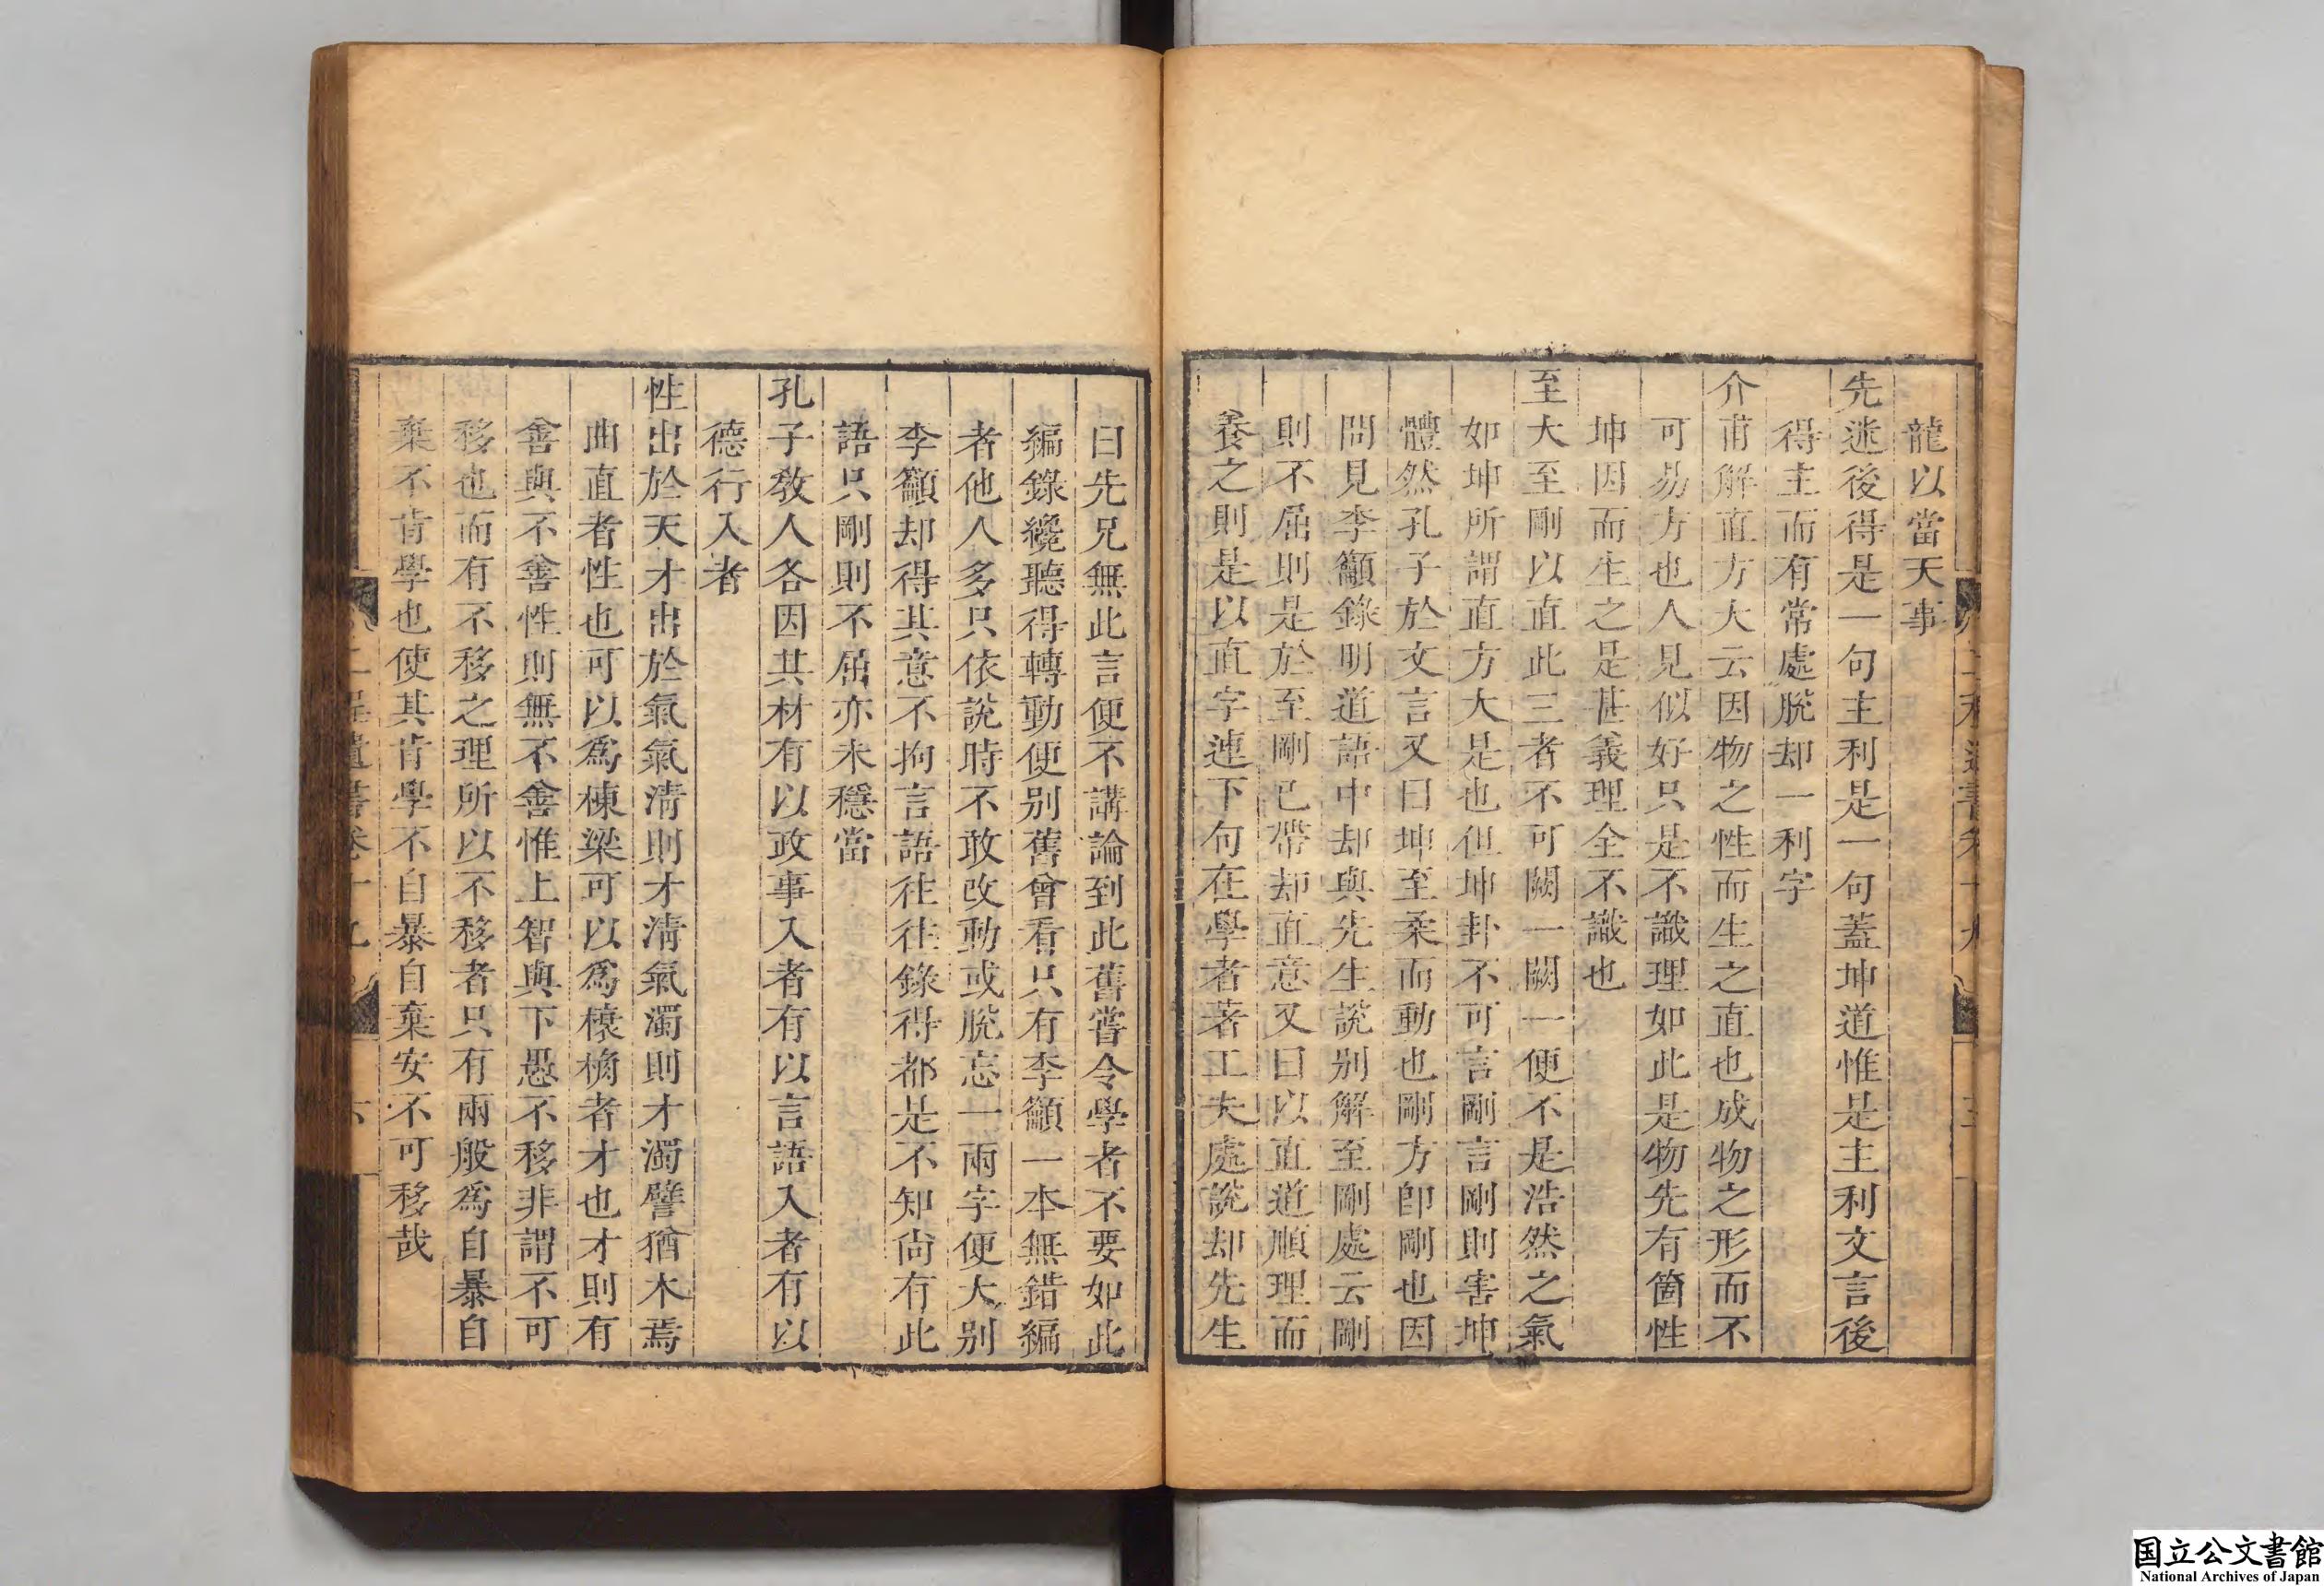 龍以當天事
先迷後得是一句主利是一句蓋坤道惟是主利文言後
得主而有常處脫却一利字
介甫解直方大云因物之性而生之直也成物之形而不
可易方也人見似好只是不識理如此是物先有箇性
坤因而生之是甚義理全不識也
至大至剛以直此三者不可闕一闕一便不是浩然之氣
如坤所謂直方大是也但坤卦不可言剛言剛則害坤
體然孔子於文言又曰坤至柔而動也剛方卽剛也因
問見李籲錄明道語中却與先生說别解至剛處云剛
則不屈則是於至剛已帶却直意又曰以直道順理而
養之則是以直字連下句在學者著工夫處說却先生
曰先兄無此言便不講論到此舊嘗令學者不要如此
編錄纔聽得轉動便别舊曾看只有李籲一本無錯編
者他人多只依說時不敢改動或脫忘一兩字便大别
李籲却得其意不拘言語往往錄得都是不知尚有此
語只剛則不屈亦未穩當
孔子敎人各因其材有以政事入者有以言語入者有以
德行入者
性出於天才出於氣氣淸則才淸氣濁則才濁譬猶木焉
曲直者性也可以爲棟梁可以爲榱桷者才也才則有
善與不善性則無不善惟上智與下愚不移非謂不可
移也而有不移之理所以不移者只有兩般爲自暴自
棄不肯學也使其肯學不自暴自棄安不可移哉
二程遺書卷十九
六
国立公文書館
National Archives of Japan